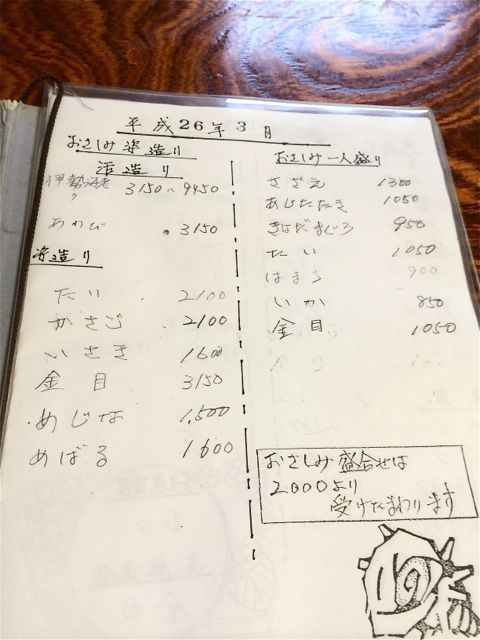 平成26年3月
おさしみ姿造り
活造り
伊勢海老 3150〜9450
あわび 3150
姿造り
たい 2100
かさご 2100
いさき 1600
金目 3150
めじな 1,500
めばる 1600
おさしみ一人盛り
さざえ 1300
あじたたき 1050
きはだまぐろ 950
たい 1050
はまち 900
いか 850
金目 1050
おさしみ盛合せは
2000より
受けたまわります